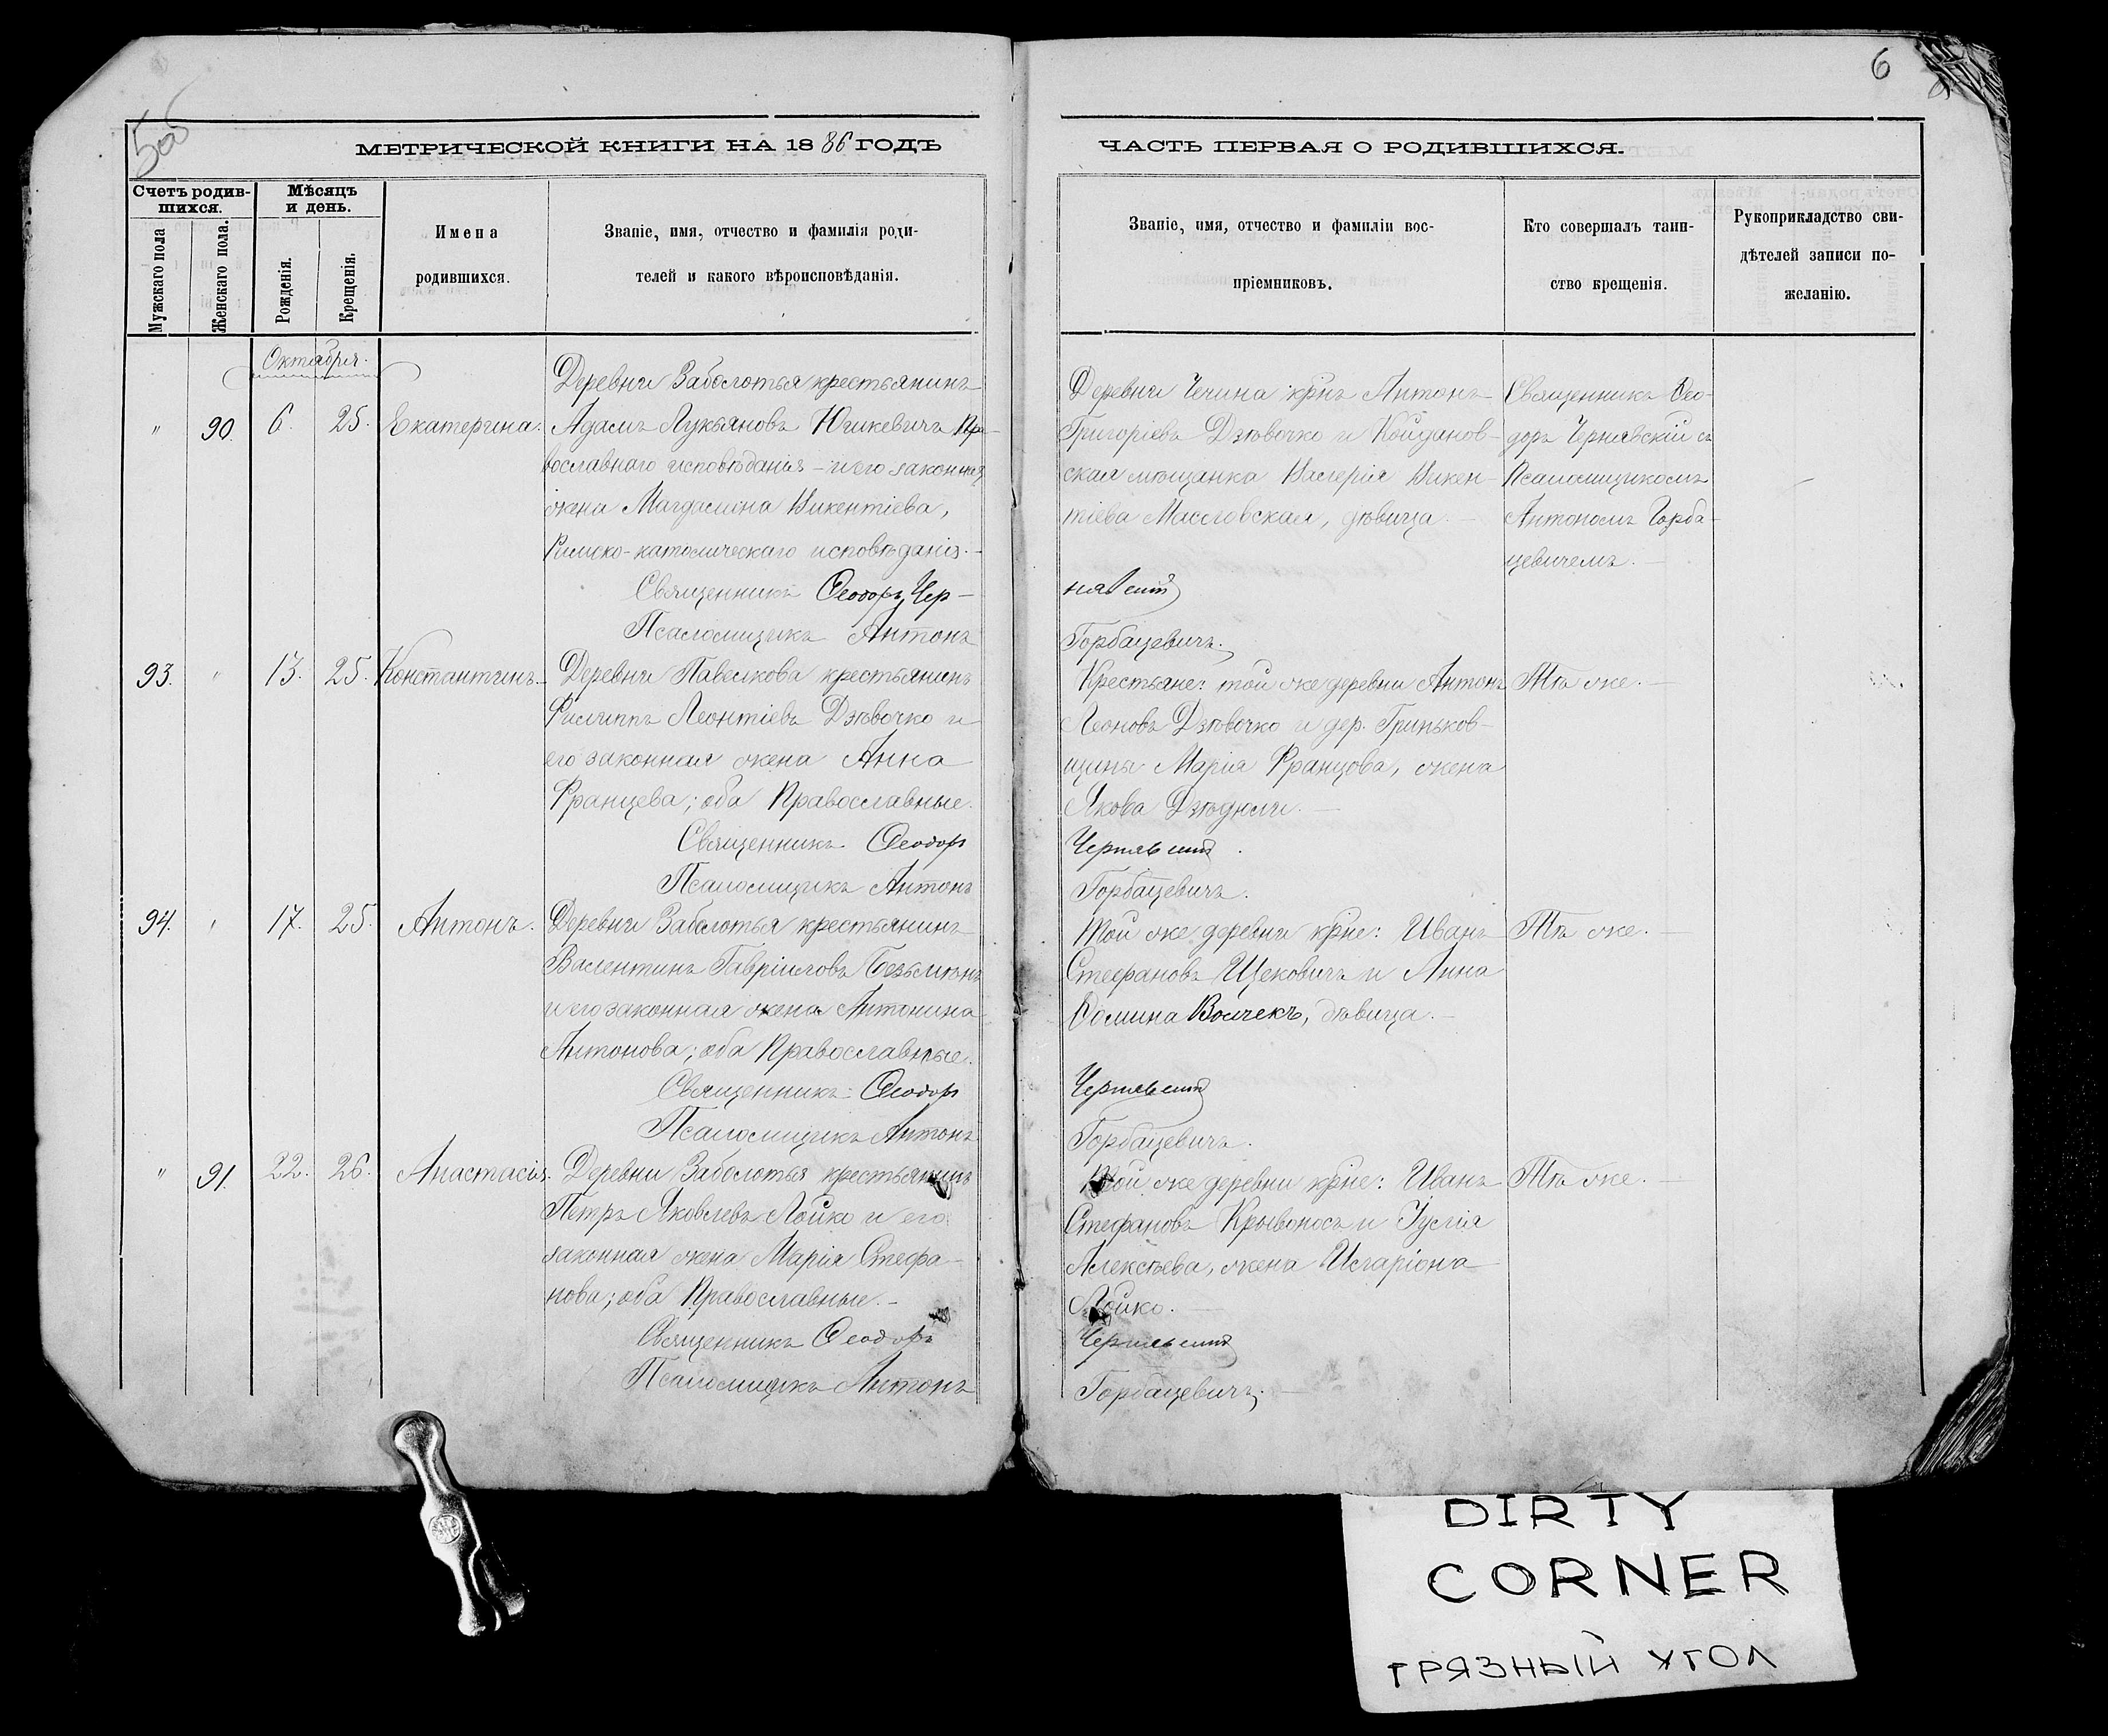 5об
6
МЕТРИЧЕСКОЙ КНИГИ НА 1886 ГОДЪ
ЧАСТЬ ПЕРВАЯ О РОДИВШИХСЯ.
Счетъ родив-
шихся.
Мужскаго пола
Женскаго пола.
Мѣсяцъ
и день.
Рожденія.
Крещенія.
Имена
родившихся.
Званіе, имя, отчество и фамилія роди-
телей и какого вѣроисповѣданія.
Званіе, имя, отчество и фамиліи вос-
пріемниковъ.
Кто совершалъ таин-
ство крещенія.
Рукоприкладство сви-
дѣтелей записи по-
желанію.
Октября.
" 90. 6. 25. Екатерина.
Деревни Заболотья крестьянинъ
Адамъ Лукьяновъ Юшкевичъ Пра-
вославнаго исповѣданія – и его законная
жена Магдалина Викентіева,
Римско-католическаго исповѣданія. –
Священникъ Ѳеодоръ Чер-
Псаломщикъ Антонъ
Деревни Чечина крнъ Антонъ
Григоріевъ Дзѣвочко и Койданов-
ская мѣщанка Валерія Викен-
тіева Масловская, дѣвица. –
нявскій
Горбацевичъ.
Священникъ Ѳео-
доръ Чернявскій съ
Псаломщикомъ
Антономъ Горба-
цевичемъ. –
93. " 13. 25. Константинъ.
Деревни Павелкова крестьянинъ
Филиппъ Леонтіевъ Дзѣвочко и
его законная жена Анна
Францева; оба Православные.
Священникъ Ѳеодоръ
Псаломщикъ Антонъ
Крестьяне: той же деревни Антонъ
Леоновъ Дзѣвочко и дер. Гриньков-
щины Марія Францова, жена
Якова Дзѣдюли. –
Чернявскій.
Горбацевичъ.
Тѣ же. –
94. " 17. 25. Антонъ.
Деревни Заболотья крестьянинъ
Валентинъ Гавріиловъ Безъмѣнъ
и его законная жена Антонина
Антонова; оба Православные.
Священникъ Ѳеодоръ
Псаломщикъ Антонъ
Той же деревни крне: Иванъ
Стефановъ Щековичъ и Анна
Ѳомина Волчекъ, дѣвица. –
Чернявскій
Горбацевичъ.
Тѣ же. –
" 91. 22. 26. Анастасія.
Деревни Заболотья крестьянинъ
Петръ Яковлевъ Лойко и его
законная жена Марія Стефа-
нова; оба Православные. –
Священникъ Ѳеодоръ
Псаломщикъ Антонъ
Той же деревни крне: Иванъ
Стефановъ Крывоносъ и Іулія
Алексѣева, жена Иларіона
Лойко. –
Чернявскій
Горбацевичъ. –
Тѣ же. –
DIRTY
CORNER
ГРЯЗНЫЙ УГОЛ